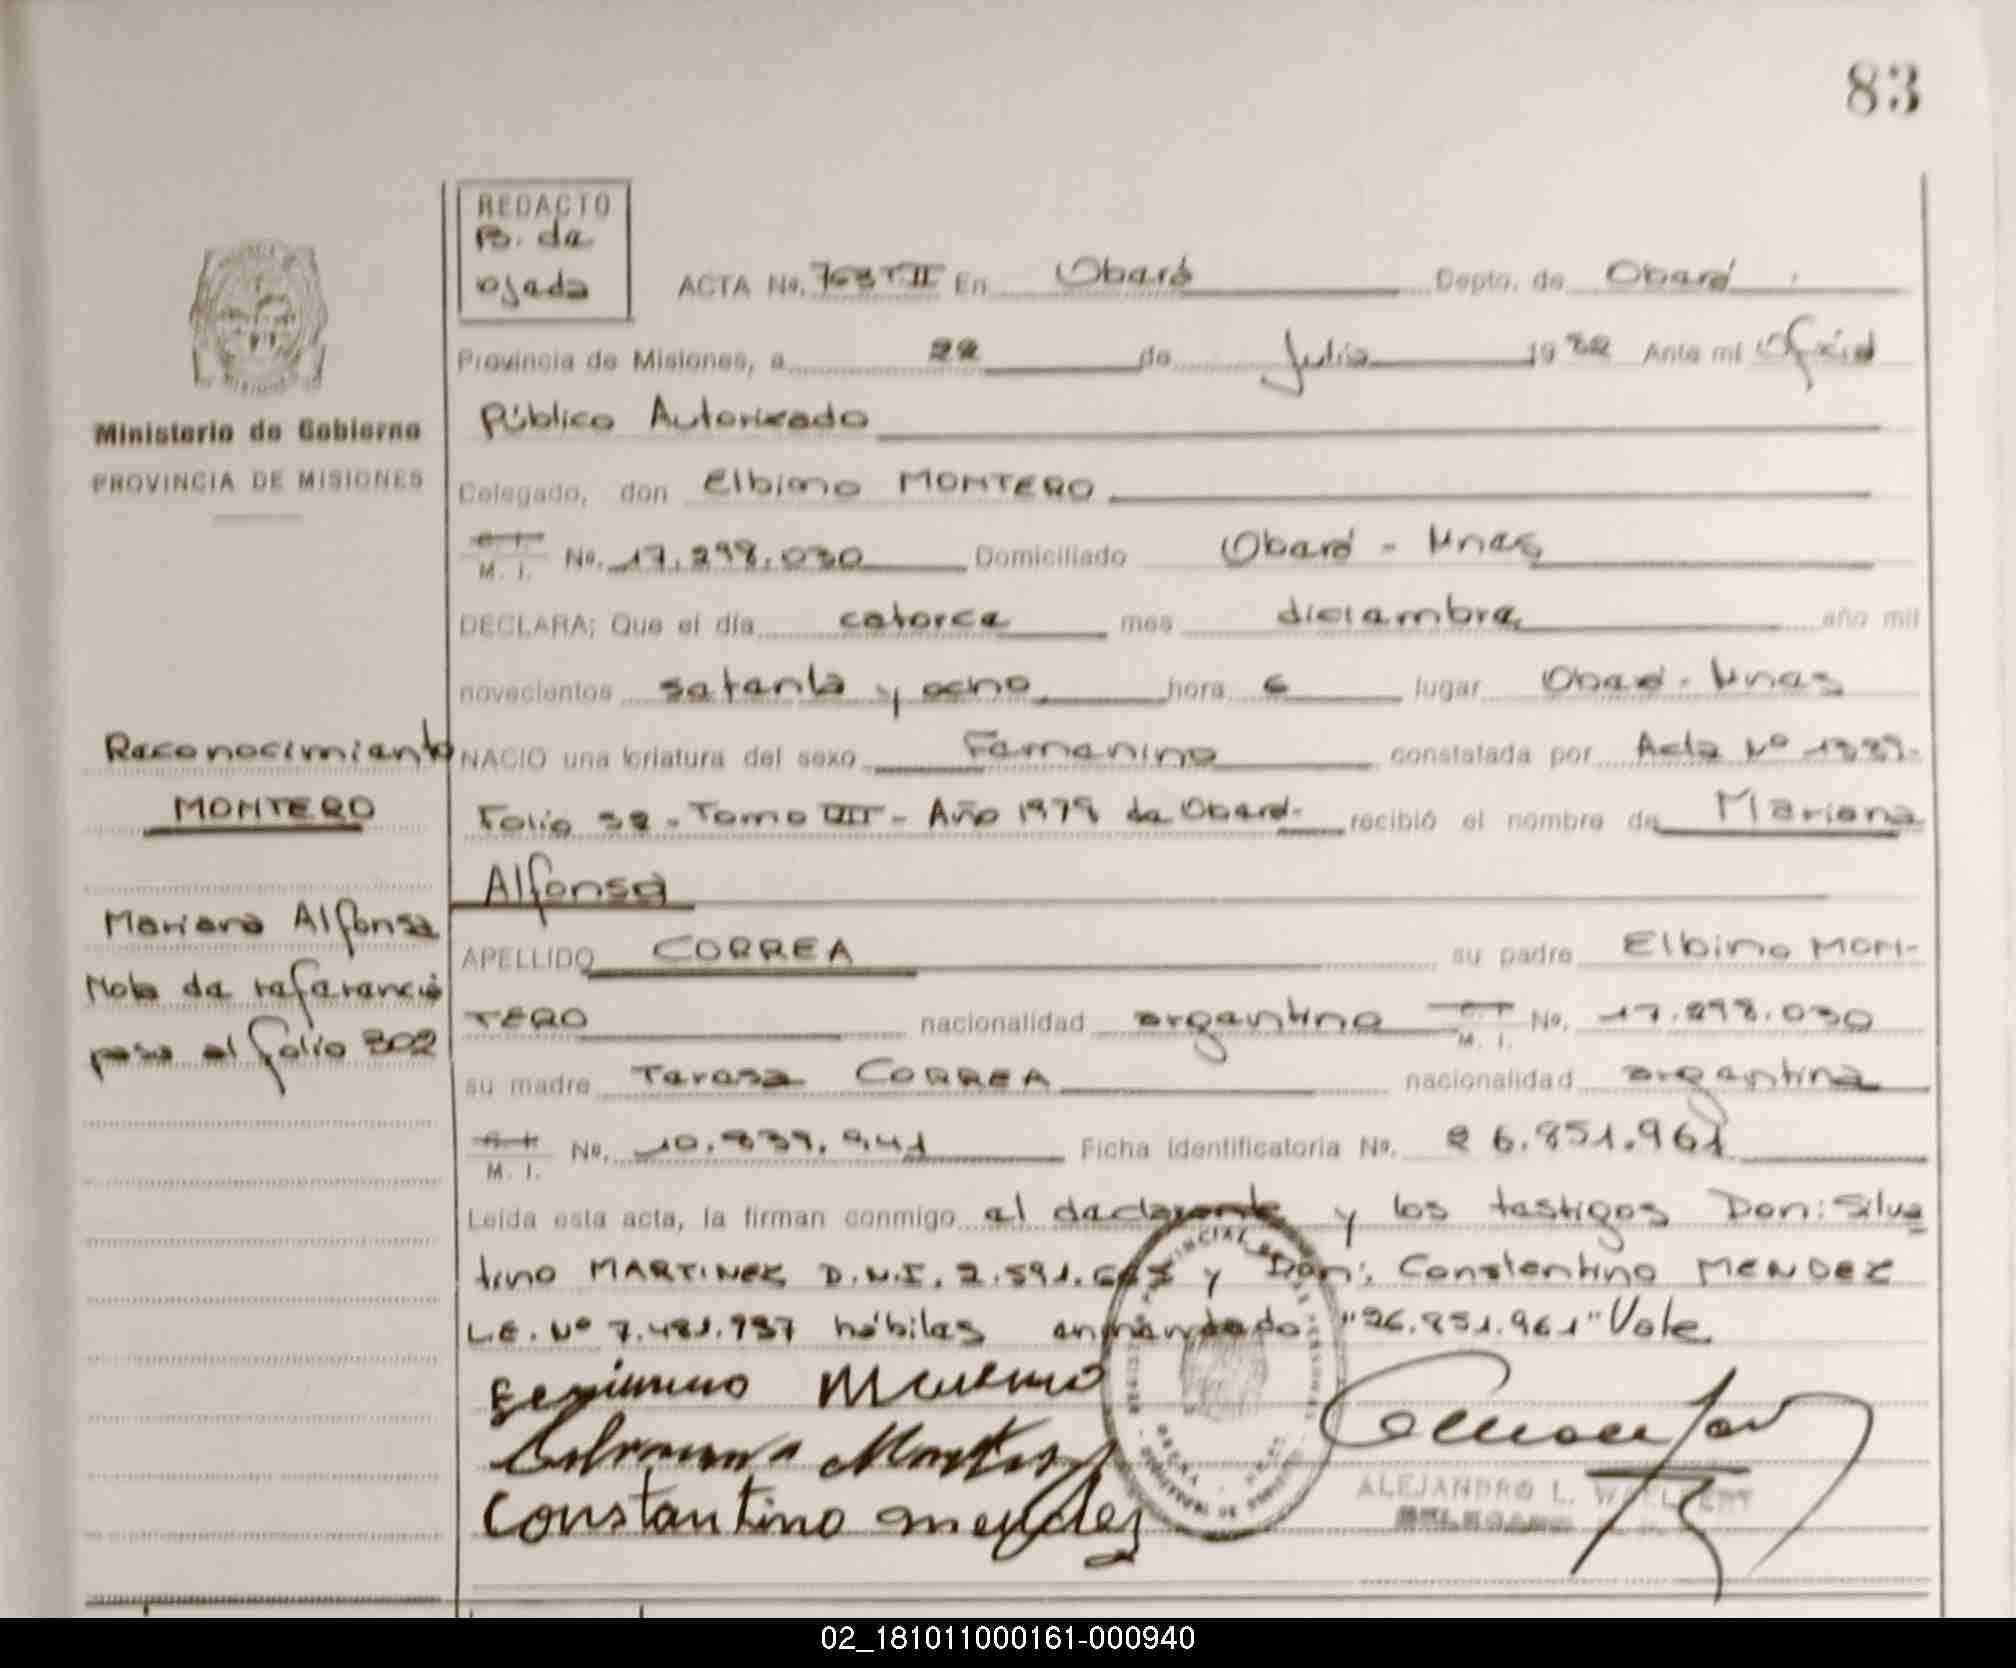 83
REDACTO
B. da
ojeda
ACTA No. 763 T.II En Oberá Depto. de Oberá
Provincia de Misiones, a 22 de Julio 1982 Ante mi Oficial
Público Autorizado
Ministerio de Gobierno
PROVINCIA DE MISIONES
Delegado, don Elbino MONTERO
C. I. M. I. No. 17.298.030 Domiciliado Oberá - Mnes
DECLARA; Que el día catorce mes diciembre año mil
novecientos setenta y ocho hora 6 lugar Oberá - Mnes
NACIO una criatura del sexo Femenino constatada por Acta Nº
Folio 32 - Tomo VII - Año 1979 de Oberá - recibió el nombre de Mariana
Alfonsa
APELLIDO CORREA su padre Elbino MON-
TERO nacionalidad argentino C. I. M. I. No. 17.298.030
su madre Teresa CORREA nacionalidad argentina
C. I. M. I. No. 10.839.941 Ficha identificatoria No. 26.851.961
Leída esta acta, la firman conmigo el declarante y los testigos Don: Silve
trino MARTINEZ D.N.I. 2.591. y Don: Constantino MENDEZ
L.E. Nº 7.481.937 hábiles enmendado "26.851.961" Vale.
Reconocimiento
MONTERO
Mariana Alfonsa
Nota de referencia
pasa al folio 302
Constantino mendez
ALEJANDRO L.
DELEGADO
02_181011000161-000940